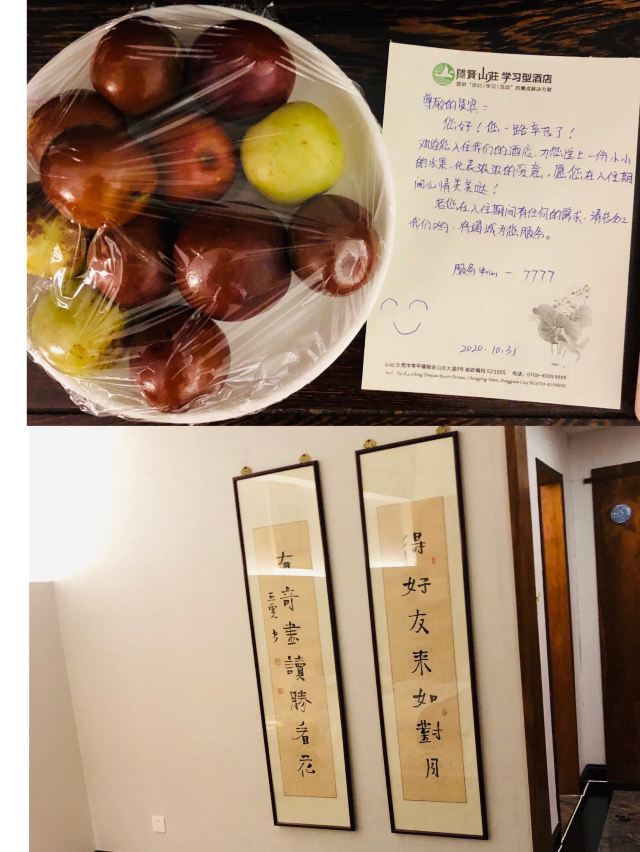 隐賢山莊 学习型酒店
提供“培训|学习|互动”的集成解决方案
尊敬的贵宾：
您好！您一路辛苦了！
欢迎您入住我们的酒店，为您送上一份小小
的水果，代表浓浓的爱意，愿您在入住期
间心情美美哒！
若您在入住期间有任何的需求，请告知
我们哟，将竭诚为您服务。
服务中心 — 7777
2020.10.31
常平镇隐贤山庄大道8号 邮政编码:523565 电话：0769-8339 8888
得好友来如對月
有奇書讀勝看花